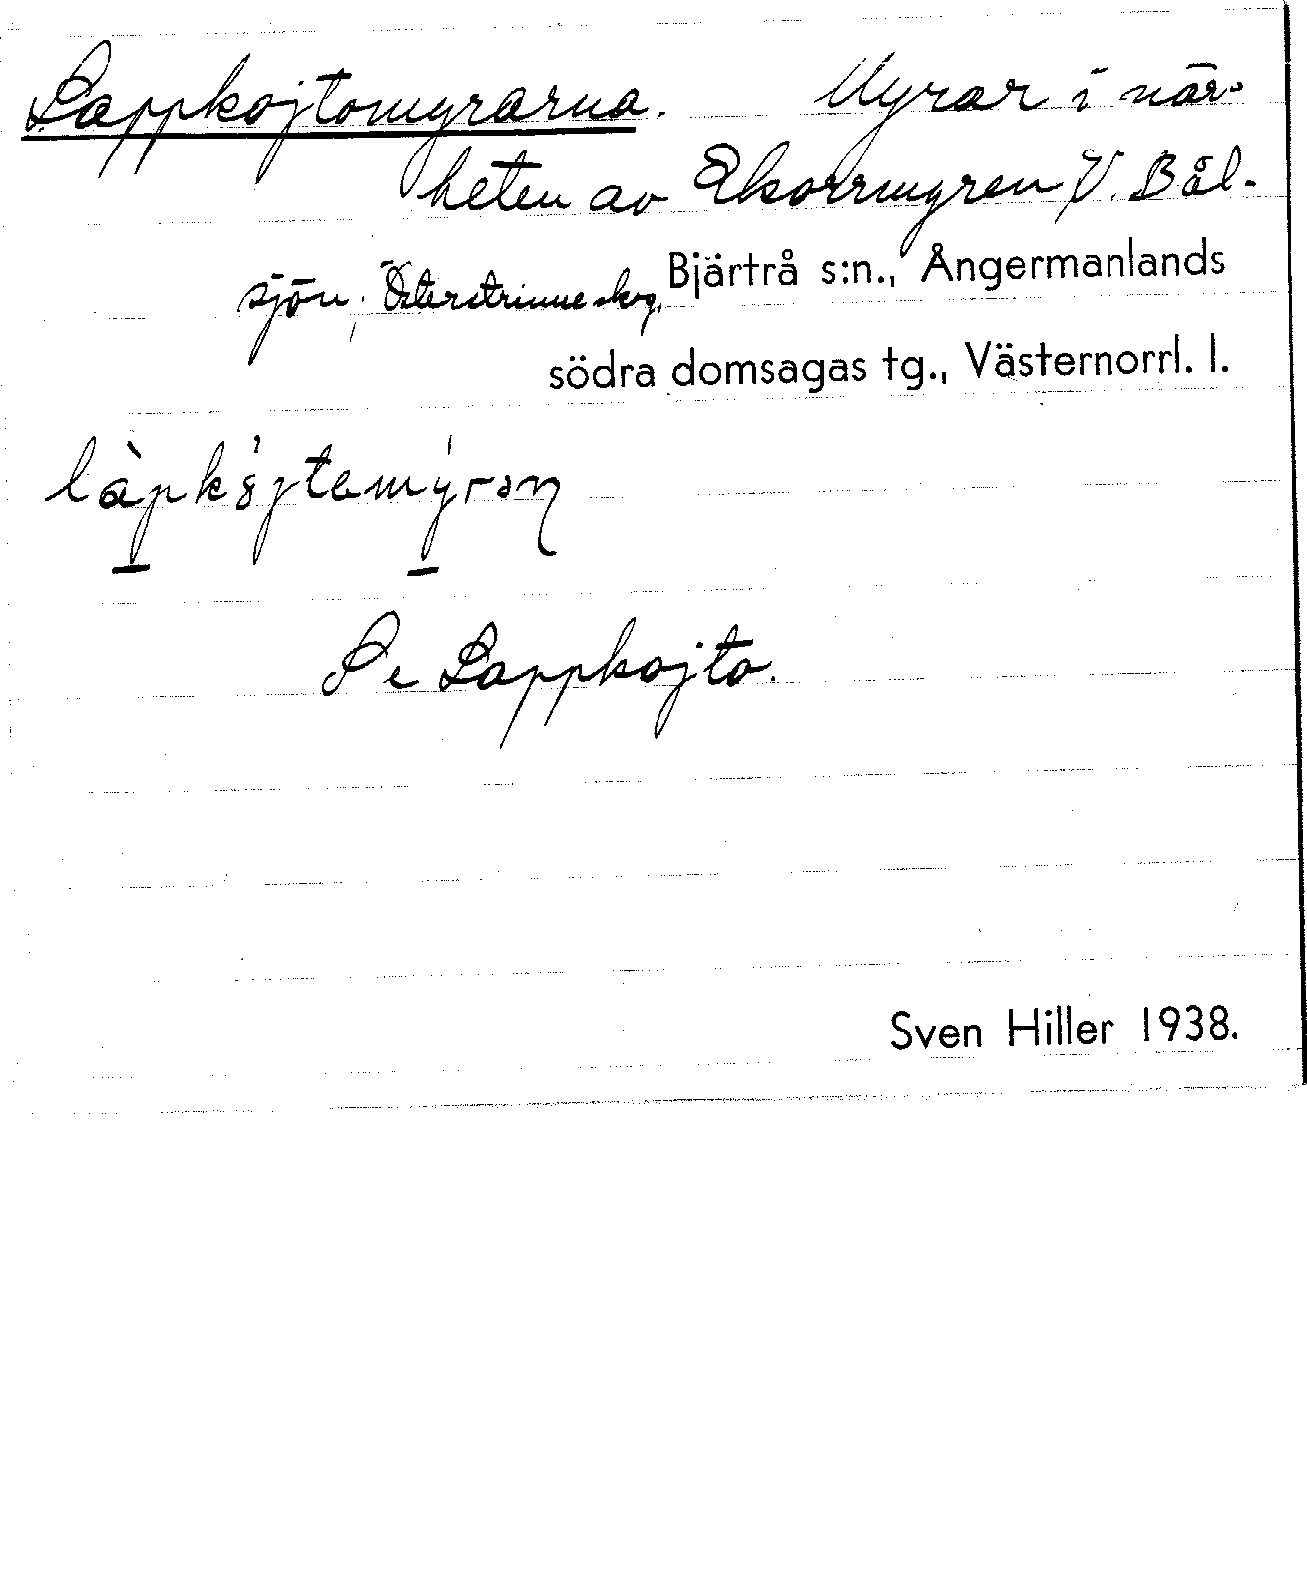 Lappkojtomyrarna. Myrar i när-
heten av Ekorrmyren V. Bål-
sjön, Österstrinne skog, Bjärtrå s:n., Ångermanlands
södra domsagas tg., Västernorrl. l.
Se Lappkojto.
Sven Hiller 1938.